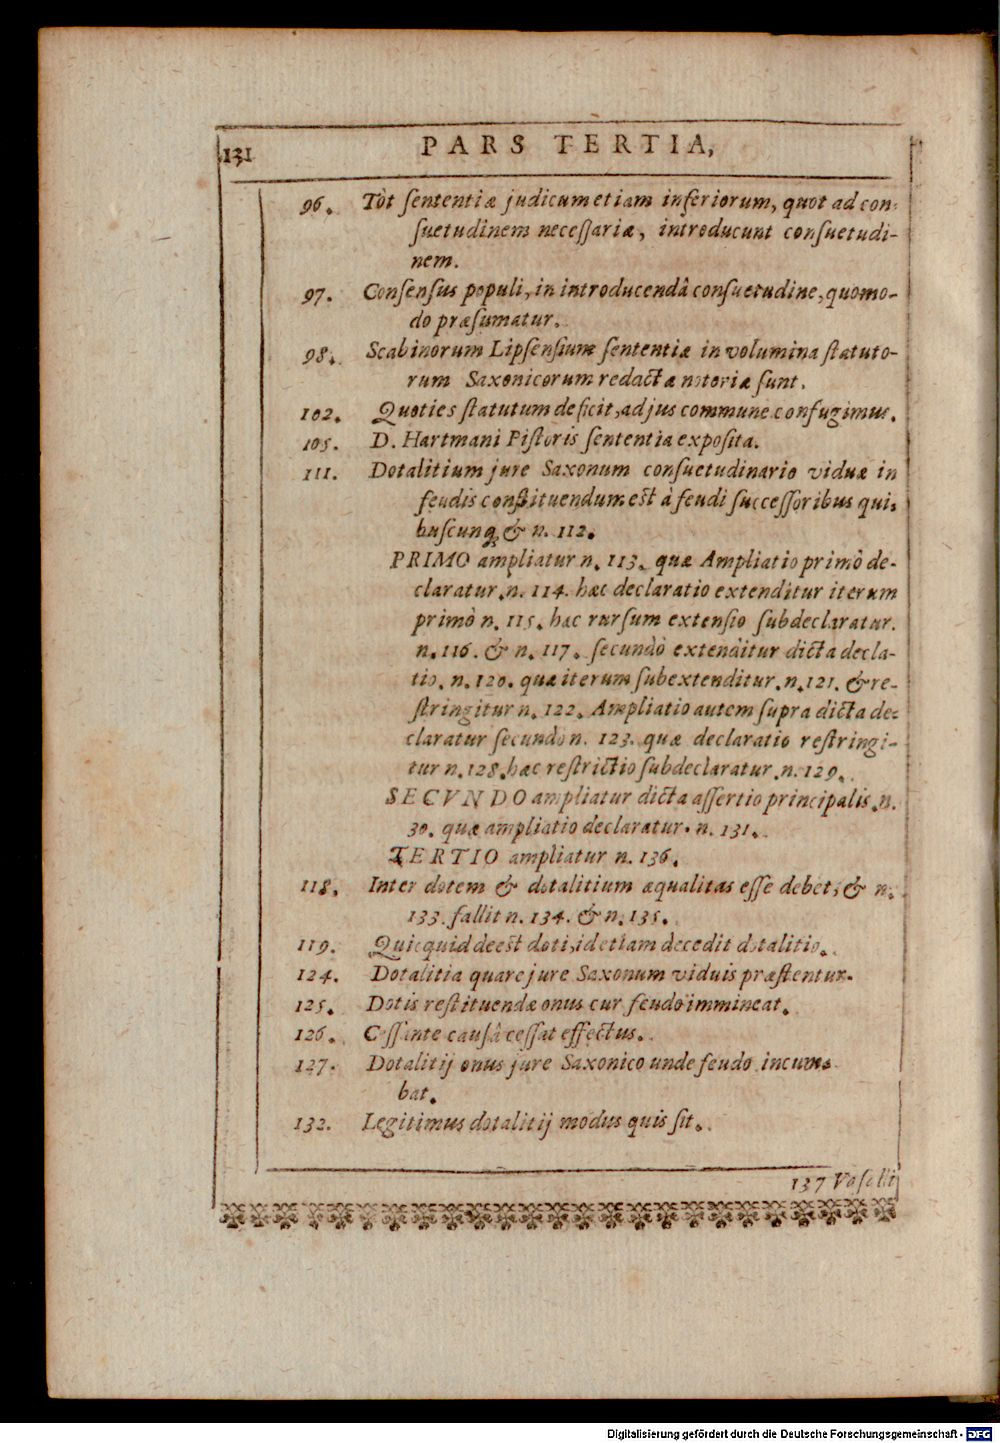 131
PARS TERTIA,
96. Tot ſententiæ judicum etiam inferiorum, quot ad con-
ſuetudinem neceſſariæ, introducunt conſuetudi-
nem.
97. Conſenſus populi, in introducendâ conſuetudine, quomo-
do præſumatur.
98. Scabinorum Lipſenſium ſententiæ in volumina ſtatuto-
rum Saxonicorum redactæ notoriæ ſunt.
102. Quoties ſtatutum deficit, ad jus commune confugimus.
105. D. Hartmani Piſtoris ſententia expoſita.
111. Dotalitium jure Saxonum conſuetudinario viduæ in
feudis conſtituendum eſt à feudi ſucceſſoribus qui-
buſcunq; & n. 112.
PRIMO ampliatur n. 113. quæ Ampliatio primò de-
claratur. n. 114. hæc declaratio extenditur iterum
primò n. 115. hæc rurſum extenſio ſubdeclaratur.
n. 116. & n. 117. ſecundò extenditur dicta decla-
tio. n. 120. quæ iterum ſubextenditur. n. 121. & re-
ſtringitur n. 122. Ampliatio autem ſupra dicta de-
claratur ſecundò n. 123. quæ declaratio reſtringi-
tur n. 128. hæc reſtrictio ſubdeclaratur. n. 129.
SECVNDO ampliatur dicta aſſertio principalis. n.
30. quæ ampliatio declaratur. n. 131.
TERTIO ampliatur n. 136.
118. Inter dotem & dotalitium æqualitas eſſe debet, & n.
133. fallit n. 134. & n. 135.
119. Quicquid deeſt doti, id etiam decedit dotalitio.
124. Dotalitia quare jure Saxonum viduis præſtentur.
125. Dotis reſtituendæ onus cur feudo immineat.
126. Ceſſante cauſâ ceſſat effectus.
127. Dotalitij onus jure Saxonico unde feudo incum-
bat.
132. Legitimus dotalitij modus quis ſit.
137 Vaſalli
Digitalisierung gefördert durch die Deutsche Forschungsgemeinschaft - DFG